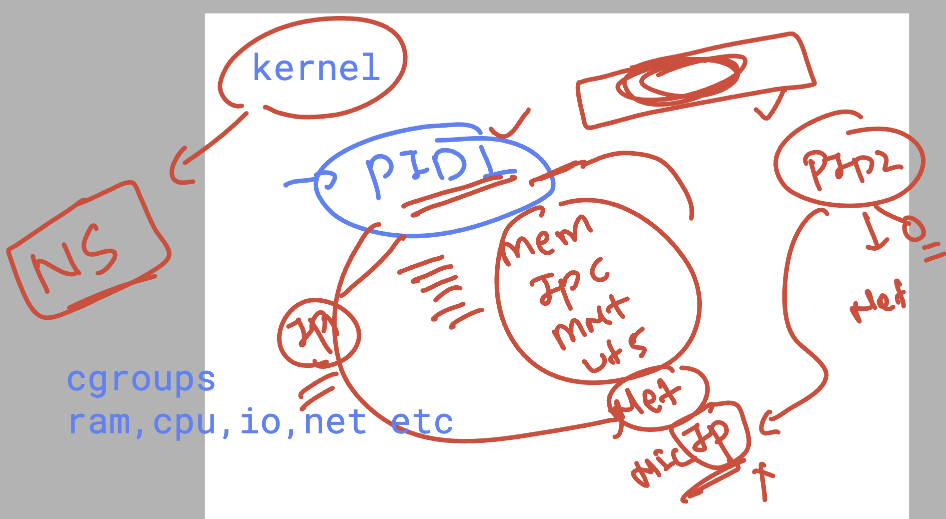 kernel
PID1
PID2
NS
mem
IPC
mnt
uts
Net
IP
Net
NIC IP
cgroups
ram,cpu,io,net etc